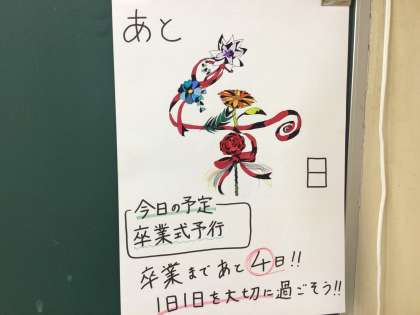 あと
4
日
今日の予定
卒業式予行
卒業まであと④日!!
1日1日を大切に過ごそう!!